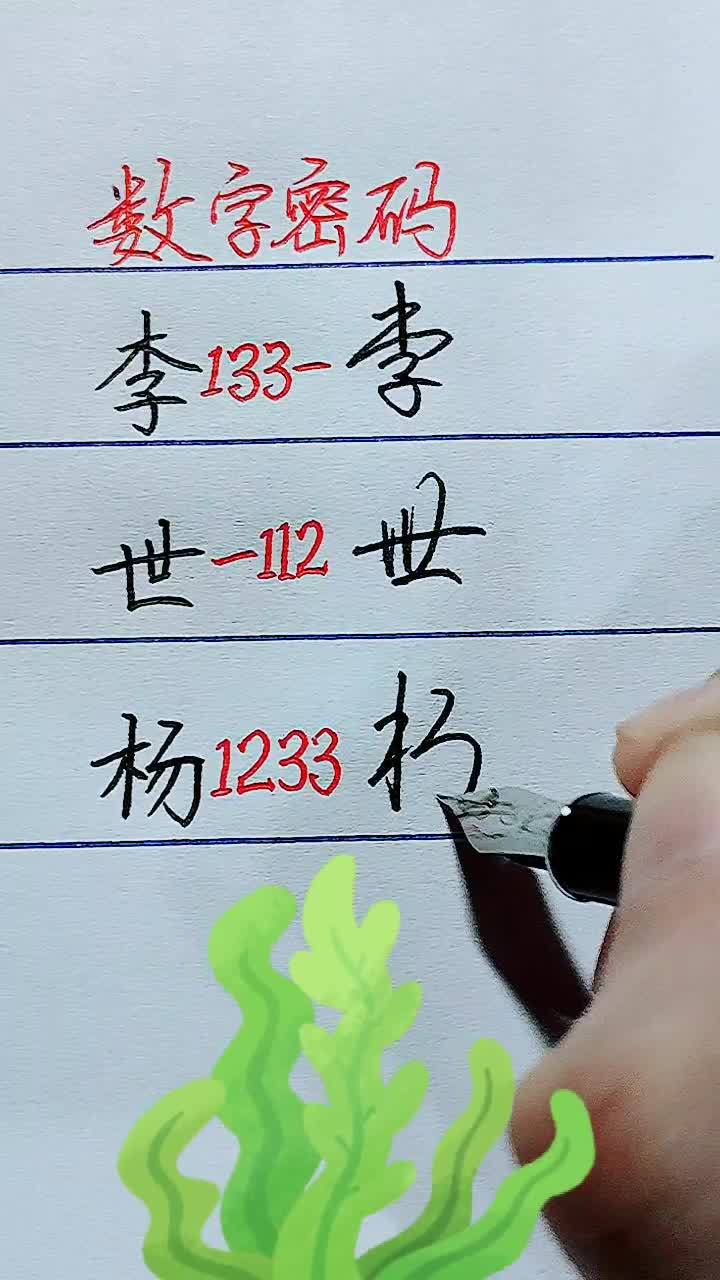 数字密码
李133-李
世-112世
杨1233